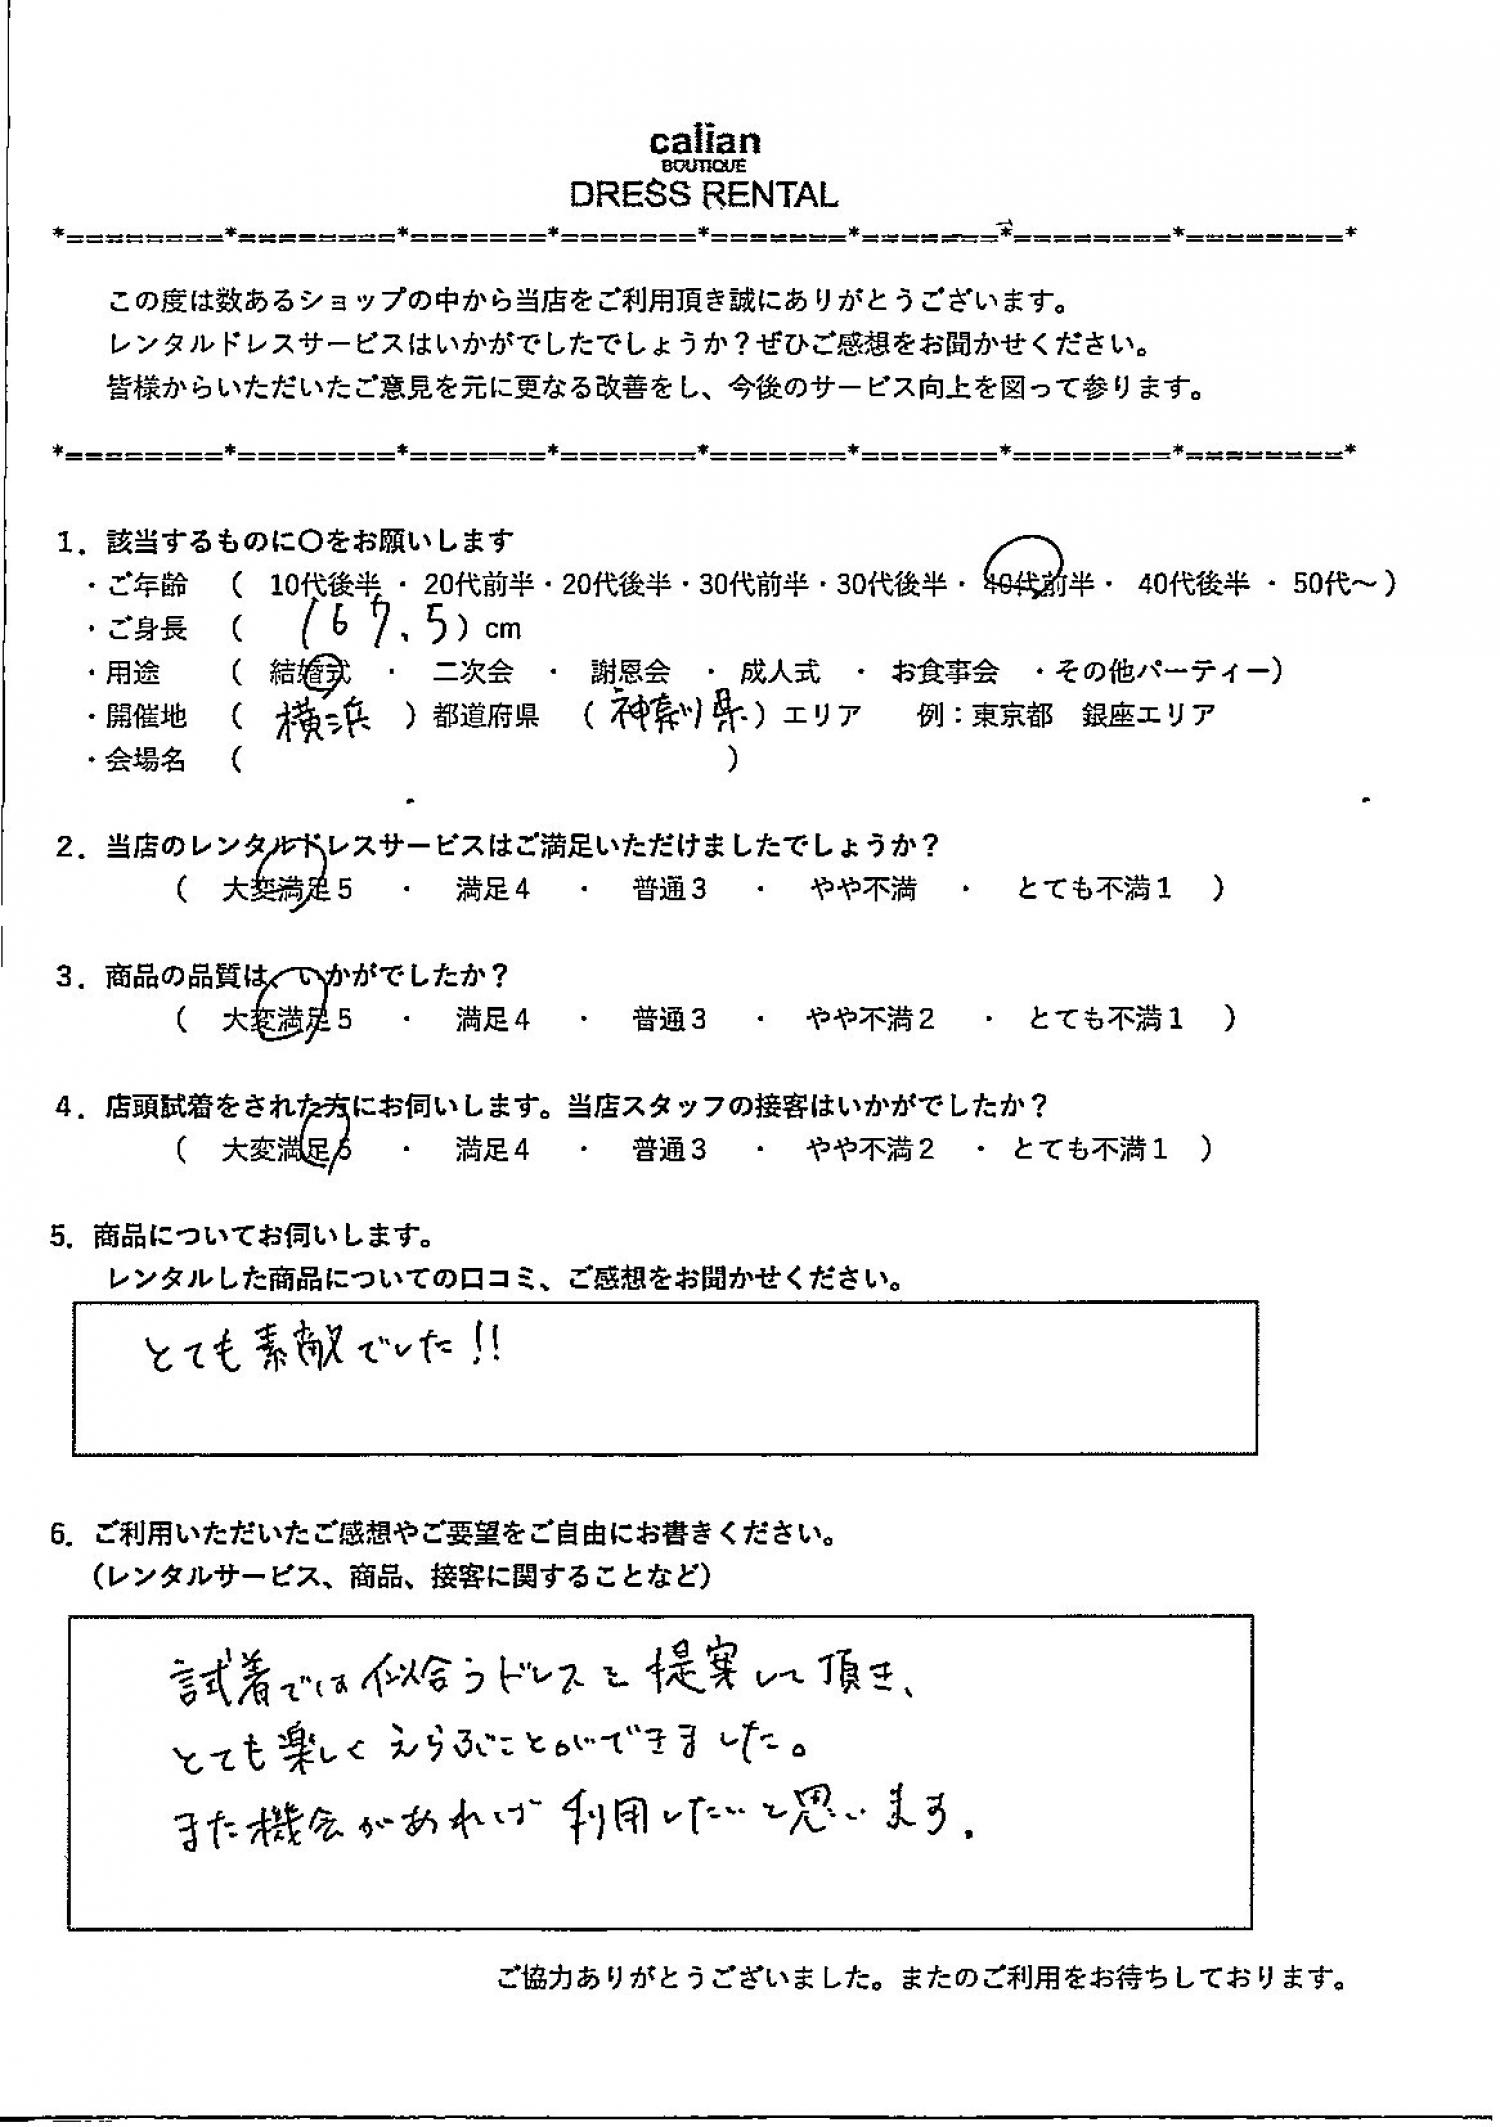 calian
BOUTIQUE
DRESS RENTAL
*========*========*=======*=======*=======*=======*========*========*
この度は数あるショップの中から当店をご利用頂き誠にありがとうございます。
レンタルドレスサービスはいかがでしたでしょうか？ぜひご感想をお聞かせください。
皆様からいただいたご意見を元に更なる改善をし、今後のサービス向上を図って参ります。
*========*========*=======*=======*=======*=======*========*========*
1．該当するものに〇をお願いします
・ご年齢 （ 10代後半 ・ 20代前半・20代後半・30代前半・30代後半・ 40代前半・ 40代後半 ・ 50代～）
・ご身長 （ 167.5）cm
・用途 （ 結婚式 ・ 二次会 ・ 謝恩会 ・ 成人式 ・ お食事会 ・その他パーティー）
・開催地 （ 横浜 ）都道府県 （ 神奈川県 ）エリア 例：東京都 銀座エリア
・会場名 （ ）
2．当店のレンタルドレスサービスはご満足いただけましたでしょうか？
（ 大変満足5 ・ 満足4 ・ 普通3 ・ やや不満 ・ とても不満1 ）
3．商品の品質は、いかがでしたか？
（ 大変満足5 ・ 満足4 ・ 普通3 ・ やや不満2 ・ とても不満1 ）
4．店頭試着をされた方にお伺いします。当店スタッフの接客はいかがでしたか？
（ 大変満足5 ・ 満足4 ・ 普通3 ・ やや不満2 ・ とても不満1 ）
5．商品についてお伺いします。
レンタルした商品についての口コミ、ご感想をお聞かせください。
とても素敵でした!!
6．ご利用いただいたご感想やご要望をご自由にお書きください。
（レンタルサービス、商品、接客に関することなど）
試着では似合うドレスを提案して頂き、
とても楽しくえらぶことができました。
また機会があれば利用したいと思います.
ご協力ありがとうございました。またのご利用をお待ちしております。